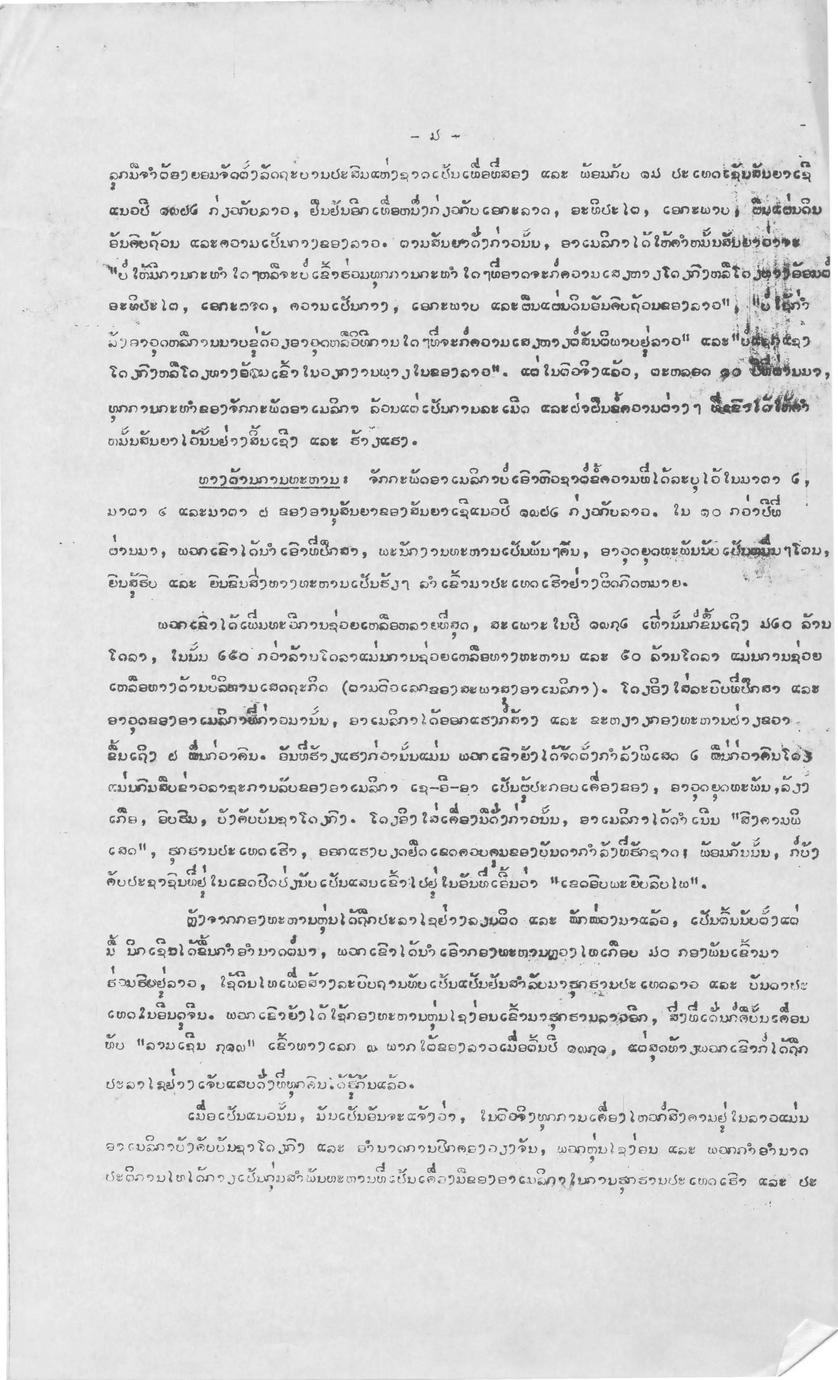 - ໓ -
ລຸກມືຈຳຕ້ອງຍອມຈັດຕັ້ງລັດຖະບານປະສົມແຫ່ງຊາດເປັນເທື່ອທີ່ສອງ ແລະ ພ້ອມກັບ ໑໓ ປະເທດເຊັນສັນຍາເຊີ
ແນວປີ ໑໙໖໒ ກ່ຽວກັບລາວ, ຢືນຢັນອີກເທື່ອຫນຶ່ງກ່ຽວກັບເອກະລາດ, ອະທິປະໄຕ, ເອກະພາບ, ຜືນແຜ່ນດິນ
ອັນຄົບຖ້ວນ ແລະຄວາມເປັນກາງຂອງລາວ. ຕາມສັນຍາດັ່ງກ່າວນັ້ນ, ອາເມລິກາໄດ້ໃຫ້ຄຳຫມັ້ນສັນຍາວ່າຈະ
"ບໍ່ໃຫ້ມີການກະທຳໃດໆຫລືຈະບໍ່ເຂົ້າຮ່ວມທຸກການກະທຳໃດໆທີ່ອາດຈະກໍ່ຄວາມເສຽຫາຽໂດຽກົງຫລືໂດຽທາງອ້ອມຕໍ່
ອະທິປະໄຕ, ເອກະລາດ, ຄວາມເປັນກາງ, ເອກະພາບ ແລະຜືນແຜ່ນດິນອັນຄົບຖ້ວນຂອງລາວ", "ບໍ່ໃຊ້ກຳ
ລັງອາວຸດຫລືການນາບຂູ່ດ້ວຽອາວຸດຫລືວິທີການໃດໆທີ່ຈະກໍ່ຄວາມເສຽຫາຽຕໍ່ສັນຕິພາບຢູ່ລາວ" ແລະ"ບໍ່ແຊກແຊງ
ໂດຽກົງຫລືໂດຽທາງອ້ອມເຂົ້າໃນວຽກງານພາຽໃນຂອງລາວ". ແຕ່ໃນຕົວຈິງແລ້ວ, ຕະຫລອດ ໑໐ ປີທີ່ຜ່ານມາ,
ທຸກການກະທຳຂອງຈັກກະພັດອາເມລິກາ ລ້ວນແຕ່ເປັນການລະເມີດ ແລະຝ່າຝືນຂໍ້ຄວາມຕ່າງໆ ທີ່ເຂົາໄດ້ໃຫ້ຄຳ
ຫມັ້ນສັນຍາໄວ້ນັ້ນຢ່າງສິ້ນເຊີງ ແລະ ຮ້າຽແຮງ.
ທາງດ້ານການທະຫານ: ຈັກກະພັດອາເມລິກາບໍ່ເອົາຫົວຊາຕໍ່ຂໍ້ຄວາມທີ່ໄດ້ລະບຸໄວ້ໃນມາດຕາ ໒,
ມາດຕາ ໔ ແລະມາດຕາ ໘ ຂອງອານຸສັນຍາຂອງສັນຍາເຊີແນວປີ ໑໙໖໒ ກ່ຽວກັບລາວ. ໃນ ໑໐ ກວ່າປີທີ່
ຜ່ານມາ, ພວກເຂົາໄດ້ນຳເອົາທີ່ປຶກສາ, ພະນັກງານທະຫານເປັນພັນໆຄົນ, ອາວຸດຍຸດທະພັນນັບເປັນຫມື່ນໆໂຕນ,
ຍົນສູ້ຮົບ ແລະ ຍົນຂົນສົ່ງທາງທະຫານເປັນຮ້ຽໆ ລຳເຂົ້າມາປະເທດເຮົາຢ່າງຜິດກົດຫມາຍ.
ພວກເຂົາໄດ້ເພີ່ມທະວີການຊ່ອຍເຫລືອຫລາຍທີ່ສຸດ, ສະເພາະໃນປີ ໑໙໗໒ ເທົ່ານັ້ນກໍ່ຂຶ້ນເຖິງ ໓໒໐ ລ້ານ
ໂດລາ, ໃນນັ້ນ ໒໕໐ ກວ່າລ້ານໂດລາແມ່ນການຊ່ອຍເຫລືອທາງທະຫານ ແລະ ໕໐ ລ້ານໂດລາ ແມ່ນການຊ່ອຍ
ເຫລືອທາງດ້ານບໍລິຫານເສດຖະກິດ (ຕາມຕົວເລກຂອງສະພາສູງອາເມລິກາ). ໂດຽອີງໃສ່ລະບົບທີ່ປຶກສາ ແລະ
ອາວຸດຂອງອາເມລິກາທີ່ກ່າວມານັ້ນ, ອາເມລິກາໄດ້ອອກແຮງກໍ່ສ້າງ ແລະ ຂະຫຽາຽກອງທະຫານຝ່າຽຂວາ
ຂຶ້ນເຖິງ ໘ ຫມື່ນກ່ວາຄົນ. ອັນທີ່ຮ້າຽແຮງກ່ວານັ້ນແມ່ນ ພວກເຂົາຍັງໄດ້ຈັດຕັ້ງກຳລັງພິເສດ ໒ ຫມື່ນກ່ວາຄົນໂດຽ
ແມ່ນກົມສືບຂ່າວລາຊະການລັບຂອງອາເມລິກາ ເຊ-ອີ-ອາ ເປັນຜູ້ປະກອບເຄື່ອງຂອງ, ອາວຸດຍຸດທະພັນ,ລ້ຽງ
ເກືອ, ອົບຮົມ, ບັງຄັບບັນຊາໂດຽກົງ. ໂດຽອີງໃສ່ເຄື່ອງມືດັ່ງກ່າວນັ້ນ, ອາເມລິກາໄດ້ດຳເນີນ "ສົງຄາມພິ
ເສດ", ຮຸກຮານປະເທດເຮົາ, ອອກແຮງບຽດຢຶດເຂດຄວບຄຸມຂອງບັນດາກຳລັງທີ່ຮັກຊາດ; ພ້ອມກັນນັ້ນ, ກໍ່ບັງ
ຄັບປະຊາຊົນທີ່ຢູ່ໃນເຂດປົດປ່ອຽນັບເປັນແສນເຂົ້າໄປຢູ່ໃນອັນທີ່ເອີ້ນວ່າ "ເຂດອົບພະຍົບລົບໄພ".
ຫຼັງຈາກກອງທະຫານຫຸ່ນໄດ້ຖືກປະລາໄຊຢ່າງລຽນຕິດ ແລະ ຫັກໜ່ອງມາແລ້ວ, ເປັນຕົ້ນນັບຕັ້ງແຕ່
ມື້ ນິກເຊິນໄດ້ຂື້ນກຳອຳນາດຕໍ່ມາ, ພວກເຂົາໄດ້ນຳເອົາກອງທະຫານຫຼວງໄທເກືອບ ໓໐ ກອງພັນເຂົ້າມາ
ຮ່ວມຮົບຢູ່ລາວ, ໃຊ້ດິນໄທເພື່ອສ້າງລະບົບຖານທັບເປັນແປ້ນຢັນສຳລັບມາຮຸກຮານປະເທດລາວ ແລະ ບັນດາປະ
ເທດໃນອິນດູຈີນ. ພວກເຂົາຍັງໄດ້ໃຊ້ກອງທະຫານຫຸ່ນໄຊ່ງ່ອນເຂົ້າມາຮຸກຮານລາວອີກ, ສິ່ງທີ່ເດັ່ນກໍ່ຄືບັ້ນເຄື່ອນ
ທັບ "ລາມເຊີນ ໗໑໙" ເຂົ້າທາງເລກ ໙ ພາກໃຕ້ຂອງລາວເມື່ອຕົ້ນປີ ໑໙໗໑, ແຕ່ສຸດທ້າຽພວກເຂົາກໍ່ໄດ້ຖືກ
ປະລາໄຊຢ່າງເຈັບແສບດັ່ງທີ່ທຸກຄົນໄດ້ຮູ້ກັນແລ້ວ.
ເມື່ອເປັນແນວນັ້ນ, ມັນເປັນອັນຈະແຈ້ງວ່າ, ໃນຕົວຈິງທຸກການເຄື່ອງໄຫວກໍ່ສົງຄາມຢູ່ໃນລາວແມ່ນ
ອາເມລິກາບັງຄັບບັນຊາໂດຽກົງ ແລະ ອຳນາດການປົກຄອງວຽງຈັນ, ພວກຫຸ່ນໄຊ່ງ່ອນ ແລະ ພວກກຳອຳນາດ
ປະຕິການໄທໄດ້ກາຽເປັນກຸ່ມສຳພັນທະຫານທີ່ເປັນເຄື່ອງມືຂອງອາເມລິກາໃນການຮຸກຮານປະເທດເຮົາ ແລະ ປະ